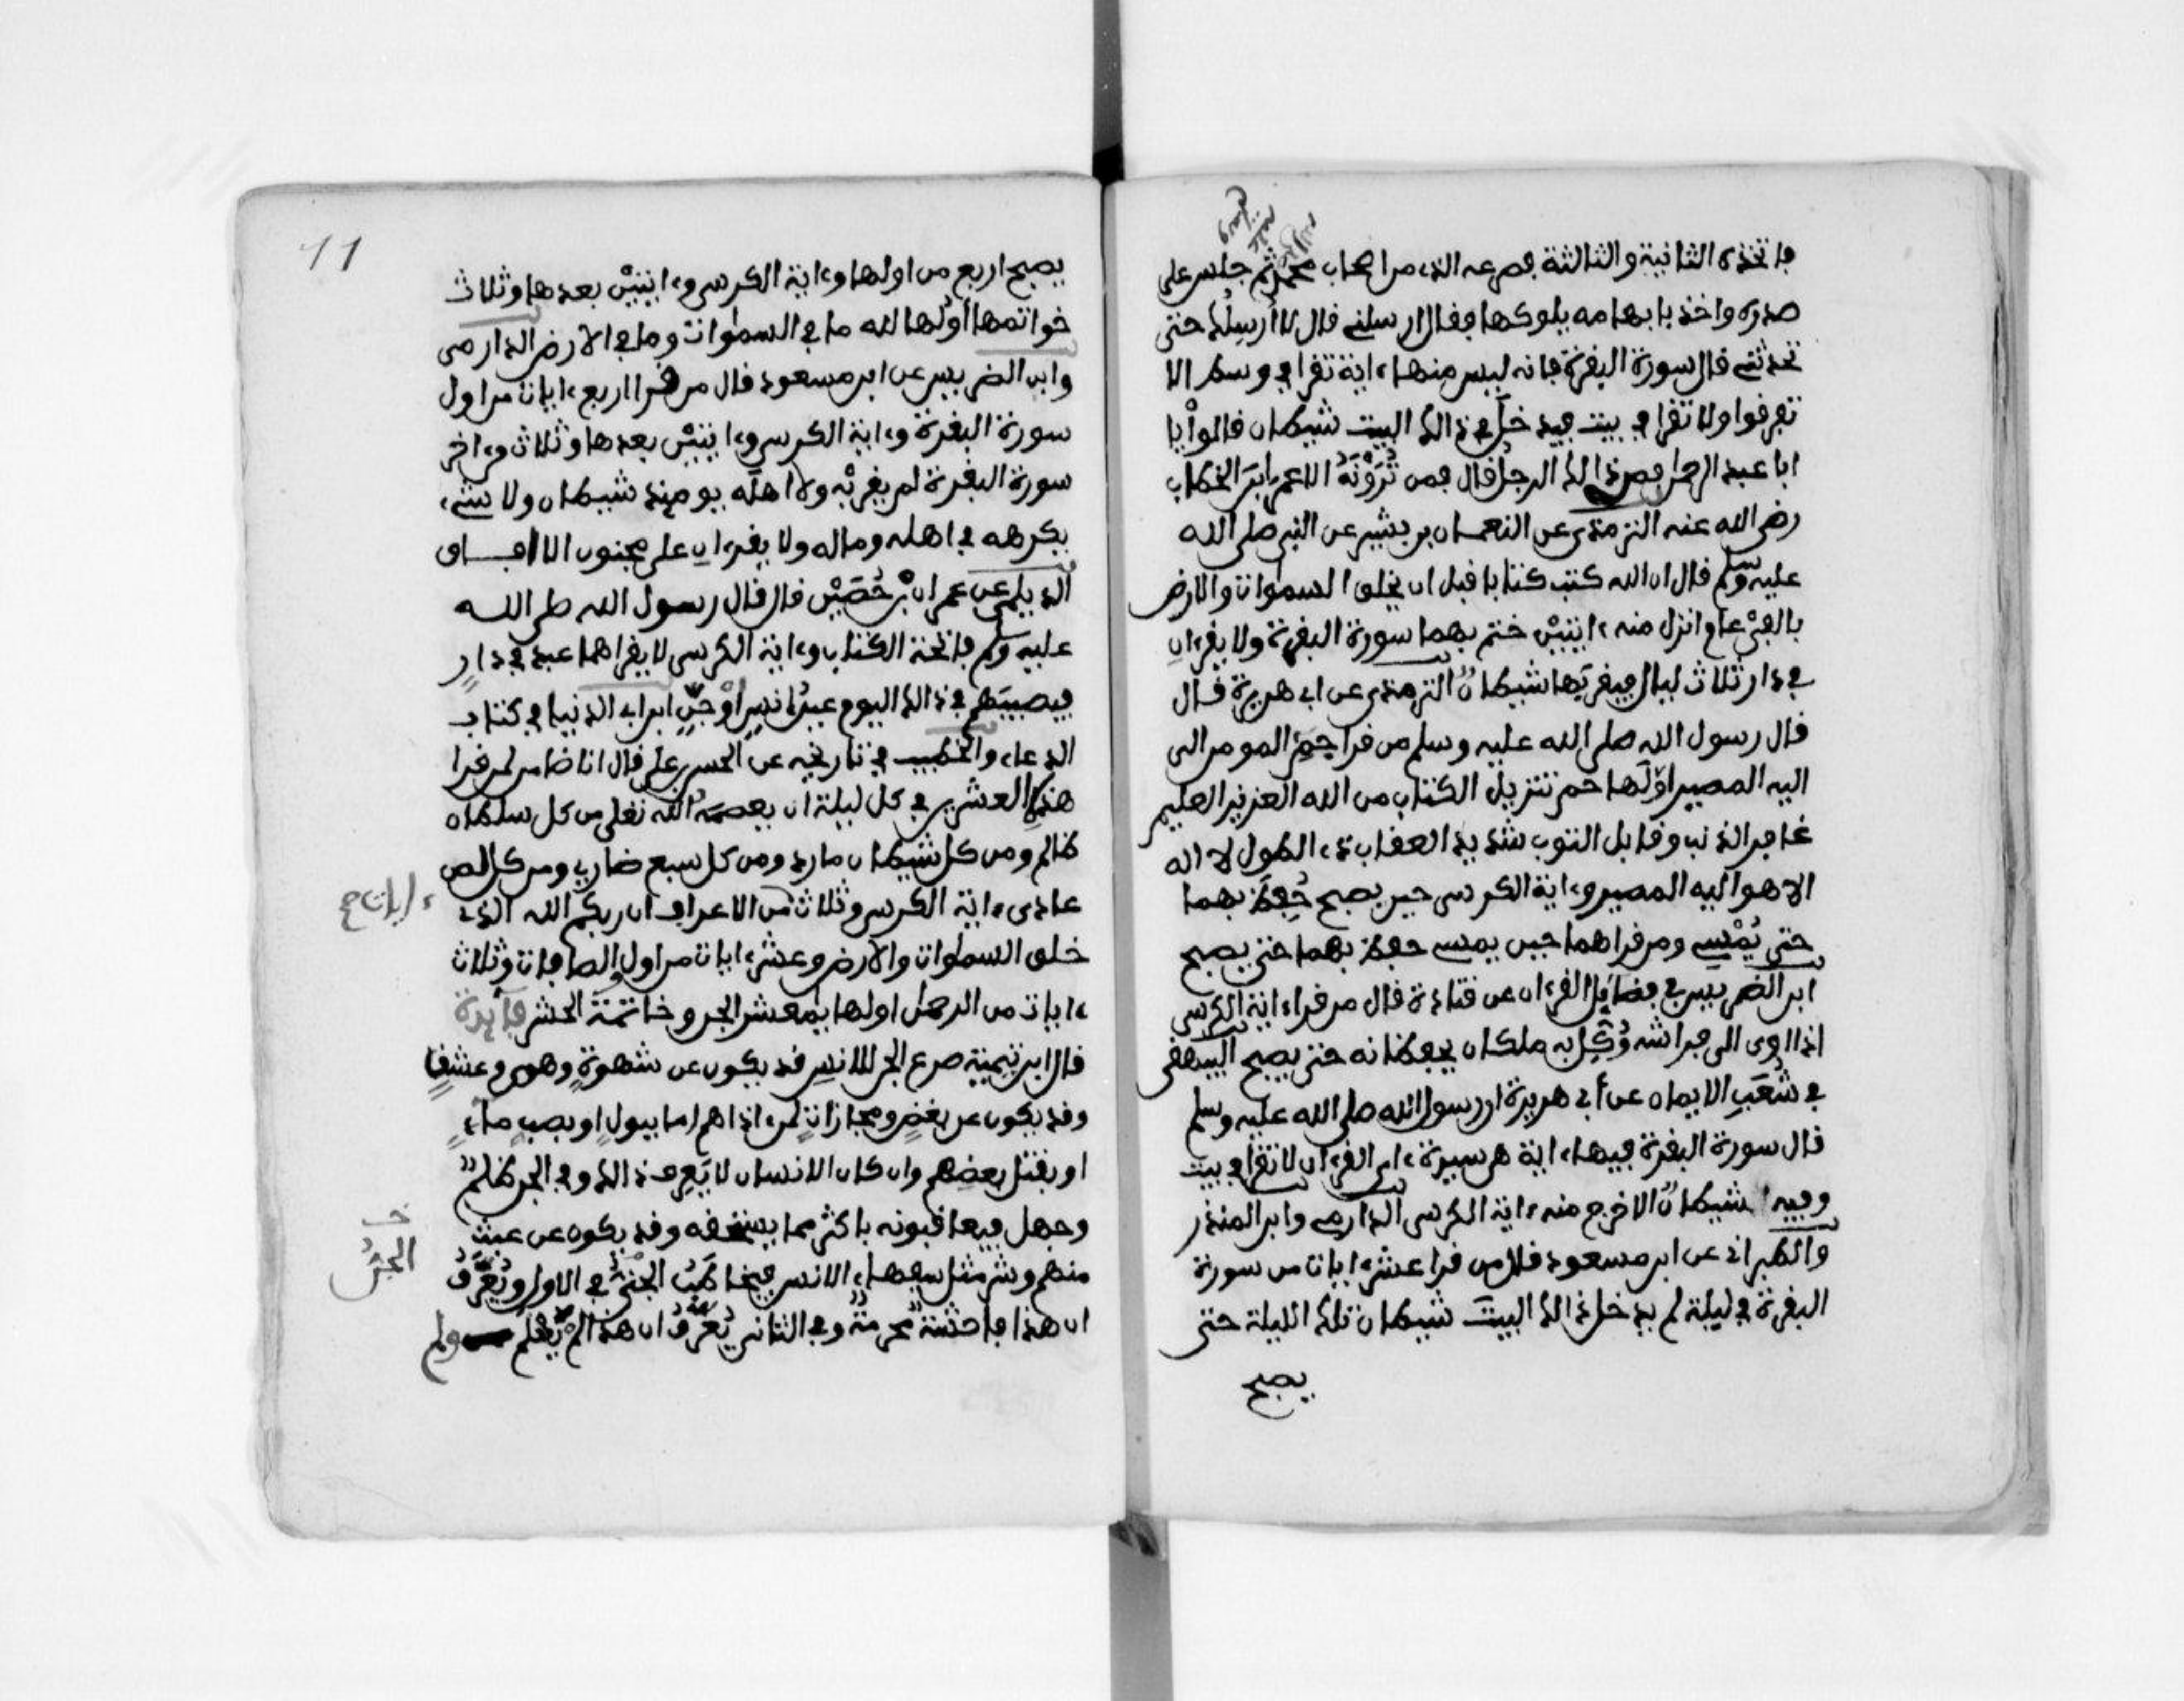 فاتخذه الثانية والثالثة فصرعه الذي من اصحاب محمد ثم جلس على
صلى الله عليه وسلم
صدره واخذ بابهامه يلوكها فقال ارسلني قال لا أرسلك حتى
تحدثني قال سورة البقرة فانه ليس منها ءاية تقرا في وسط الا
تفرقوا ولا تقرا في بيت فيدخل في ذالك البيت شيطان قالوا يا
ابا عبد الرحمن فمن ذالك الرجل قال فمن تُرَوْنَهُ الا عمر ابن الخطاب
رضي الله عنه الترمذي عن النعمان بن بشير عن النبي صلى الله
عليه وسلم قال ان الله كتب كتابا قبل ان يخلق السموات والارض
بالفيْ عام وانزل منه ءايتيْن ختم بهما سورة البقرة ولا يقرءان
في دار ثلاث ليال فيقربها شيطانٌ الترمذي عن ابي هريرة قال
قال رسول الله صلى الله عليه وسلم من قرا حم المومن الى
اليه المصير اوّلها حم تنزيل الكتاب من الله العزيز العليم
غافر الذنب وقابل التوب شديد العقاب ذي الطول لا اله
الا هو اليه المصير وءاية الكرسي حين يصبح حُفِظَ بهما
حتى يُمْسِي ومن قراهما حين يمسي حفظ بهما حتى يصبح
ابن الضريس في فضايل القرءان عن قتادة قال من قراء ءاية الكرسي
اذا اوى الى فراشه وُكِّل به ملكان يحفظانه حتى يصبح البيهقي
في شُعَب الايمان عن أبي هريرة ان رسول الله صلى الله عليه وسلم
قال سورة البقرة فيها ءاية هي سيدة ءاي القرءان لا تقرا في بيت
وفيه شيطانٌ الا خرج منه ءاية الكرسي الدارمي وابن المنذر
والطبراني عن ابن مسعود قال من قرا عشر ءايات من سورة
البقرة في ليلة لم يدخل ذالك البيت شيطان تلك الليلة حتى
يصبح
11
يصبح اربع من اولها وءاية الكرسي وءايتيْن بعدها وثلاث
خواتمها أولها لله ما في السموات وما في الارض الدارمي
وابن الضريس عن ابن مسعود قال من قرا اربع ءايات من اول
سورة البقرة وءاية الكرسي وءايتيْن بعدها وثلاث من ءاخر
سورة البقرة لم يقربْه ولا اهلَه يومئذ شيطان ولا شيء
يكرهه في اهله وماله ولا يقرءان على مجنون الا افاق
الديلمي عن عمران بْن حُصَيْن قال قال رسول الله صلى الله
عليه وسلم فاتحة الكتاب وءاية الكرسي لا يقراهما عبد في دارٍ
فيصيبَهم في ذالك اليوم عينُ انسٍ اوْ جنٍّ ابن ابي الدنيا في كتاب
الدعاء والخطيب في تاريخه عن الحسن بن علي قال انا ضامن لمن قرا
هذه العشرين في كل ليلة ان يعصمَه الله تعلى من كل سلطان
ظالم ومن كل شيطان مارد ومن كل سبع ضاري ومن كل لص
عادي ءاية الكرسي وثلاث من الاعراف ان ربكم الله الذي
ءايات صح
خلق السموات والارض وعشر ءايات من اول والصافات وثلاث
ءايات من الرحمن اولها يمعشر الجن وخاتمة الحشر فائدة
قال ابن تيمية صرع الجن للانس قد يكون عن شهوةٍ وهوى وعشقٍ
وقد يكون عن بغضٍ ومجازاتٍ لمن اذاهم اما ببولٍ او بصبِ ماءٍ
او بقتل بعضهم وان كان الانسان لا يَعرِف ذالك وفي الجن ظلمٌ
وجهل فيعاقبونه باكثر مما يستحقه وقد يكون عن عبث
منهم وشر مثل سفهاء الانس فيخاطَبُ الجنيُّ في الاول ويُعرَّفُ
الجنُّ
ان هذا فاحشةٌ محرمةٌ وفي الثاني يُعرَّفُ ان هذا لم يَعْلَم ولم